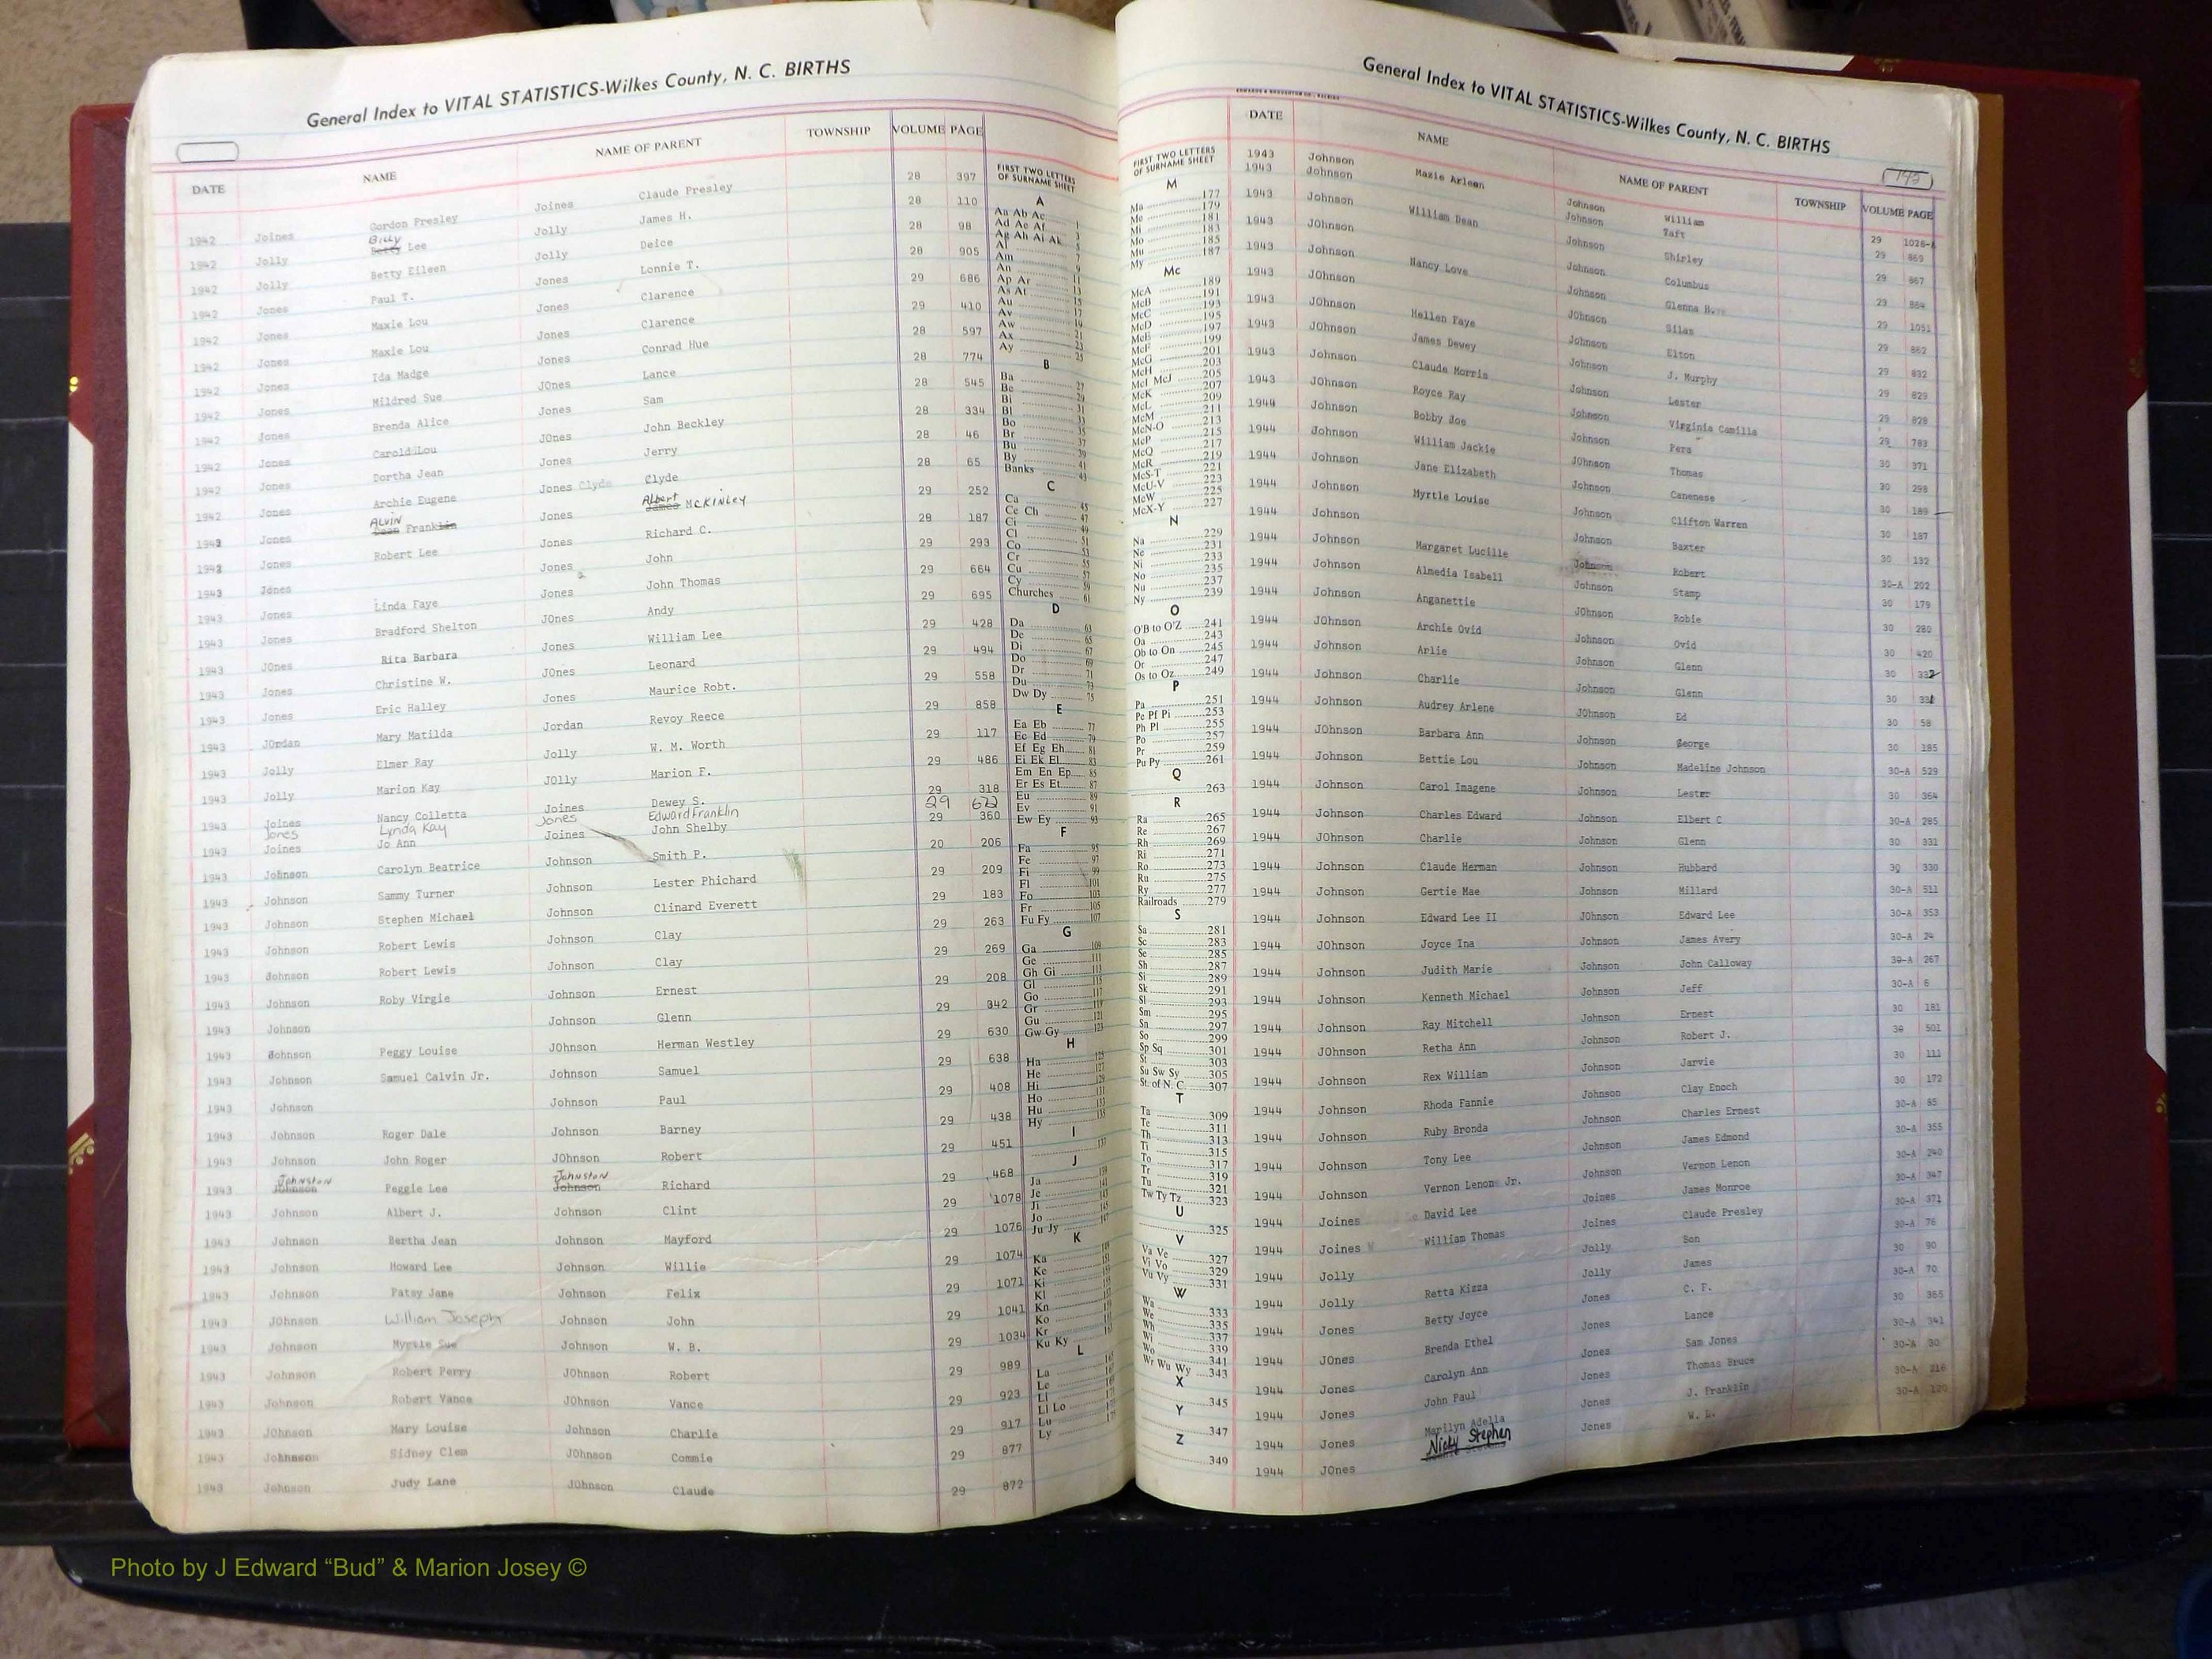 General Index to VITAL STATISTICS-Wilkes County, N. C. BIRTHS
DATE NAME NAME OF PARENT TOWNSHIP VOLUME PAGE
1942 Joines Gordon Presley Joines Claude Presley 28 397
1942 Jolly Billy Lee Jolly James H. 28 110
1942 Jolly Betty Eileen Jolly Deice 28 98
1942 Jones Paul T. Jones Lonnie T. 28 905
1942 Jones Maxie Lou Jones Clarence 29 686
1942 Jones Maxie Lou Jones Clarence 29 410
1942 Jones Ida Madge Jones Conrad Hue 28 597
1942 Jones Mildred Sue JOnes Lance 28 774
1942 Jones Brenda Alice Jones Sam 28 545
1942 Jones Carold Lou JOnes John Beckley 28 334
1942 Jones Dortha Jean Jones Jerry 28 46
1942 Jones Archie Eugene Jones Clyde Clyde 28 65
1943 Jones ALVIN Franklin Jones Albert McKINLEY 29 252
1942 Jones Robert Lee Jones Richard C. 28 187
1943 Jones Jones John 29 293
1943 Jones Linda Faye Jones John Thomas 29 664
1943 Jones Bradford Shelton JOnes Andy 29 695
1943 JOnes Rita Barbara Jones William Lee 29 428
1943 Jones Christine W. JOnes Leonard 29 494
1943 Jones Eric Halley Jones Maurice Robt. 29 558
1943 JOrdan Mary Matilda Jordan Revoy Reece 29 858
1943 Jolly Elmer Ray Jolly W. M. Worth 29 117
1943 Jolly Marion Kay JOlly Marion F. 29 486
1943 Joines Nancy Colletta Joines Dewey S. 29 318
Jones Lynda Kay Jones Edward Franklin 29 672
1943 Joines Jo Ann Joines John Shelby 29 360
1943 Johnson Carolyn Beatrice Johnson Smith P. 20 206
1943 Johnson Sammy Turner Johnson Lester Phichard 29 209
1943 Johnson Stephen Michael Johnson Clinard Everett 29 183
1943 Johnson Robert Lewis Johnson Clay 29 263
1943 Johnson Robert Lewis Johnson Clay 29 269
1943 Johnson Roby Virgie Johnson Ernest 29 208
1943 Johnson Johnson Glenn 29 342
1943 Johnson Peggy Louise JOhnson Herman Westley 29 630
1943 Johnson Samuel Calvin Jr. Johnson Samuel 29 638
1943 Johnson Johnson Paul 29 408
1943 Johnson Roger Dale Johnson Barney 29 438
1943 Johnson John Roger JOhnson Robert 29 451
1943 Johnston Johnson Peggie Lee Johnston Johnson Richard 29 468
1943 Johnson Albert J. Johnson Clint 29 1078
1943 Johnson Bertha Jean Johnson Mayford 29 1076
1943 Johnson Howard Lee Johnson Willie 29 1074
1943 Johnson Patsy Jane Johnson Felix 29 1071
1943 JOhnson William Joseph Johnson John 29 1041
1943 Johnson Myrtle Sue Johnson W. B. 29 1034
1943 Johnson Robert Perry JOhnson Robert 29 989
1943 Johnson Robert Vance JOhnson Vance 29 923
1943 JOhnson Mary Louise Johnson Charlie 29 917
1943 Johnson Sidney Clem JOhnson Commie 29 877
1943 Johnson Judy Lane JOhnson Claude 29 872
FIRST TWO LETTERS
OF SURNAME SHEET
A
Aa Ab Ac 1
Ad Ae Af 3
Ag Ah Ai Ak 5
Al 7
Am 9
An 11
Ap Ar 13
As At 15
Au 17
Av 19
Aw 21
Ax 23
Ay 25
B
Ba 27
Be 29
Bi 31
Bl 33
Bo 35
Br 37
Bu 39
By 41
Banks 43
C
Ca 45
Ce Ch 47
Ci 49
Cl 51
Co 53
Cr 55
Cu 57
Cy 59
Churches 61
D
Da 63
De 65
Di 67
Do 69
Dr 71
Du 73
Dw Dy 75
E
Ea Eb 77
Ec Ed 79
Ef Eg Eh 81
Ei Ek El 83
Em En Ep 85
Er Es Et 87
Eu 89
Ev 91
Ew Ey 93
F
Fa 95
Fe 97
Fi 99
Fl 101
Fo 103
Fr 105
Fu Fy 107
G
Ga 109
Ge 111
Gh Gi 113
Gl 115
Go 117
Gr 119
Gu 121
Gw Gy 123
H
Ha 125
He 127
Hi 129
Ho 131
Hu 133
Hy 135
I
137
J
Ja 139
Je 141
Ji
Jo 145
Ju Jy 147
K
Ka 149
Ke
Ki
Kl
Kn
Ko
Kr
Ku Ky
L
La
Le
Li
Ll Lo
Lu
Ly
General Index to VITAL STATISTICS-Wilkes County, N. C. BIRTHS
FIRST TWO LETTERS
OF SURNAME SHEET
M
Ma 177
Me 179
Mi 181
Mo 183
Mu 185
My 187
Mc
McA 189
McB 191
McC 193
McD 195
McE 197
McF 199
McG 201
McH 203
McI McJ 205
McK 207
McL 209
McM 211
McN-O 213
McP 215
McQ 217
McR 219
McS-T 221
McU-V 223
McW 225
McX-Y 227
N
Na 229
Ne 231
Ni 233
No 235
Nu 237
Ny 239
O
O'B to O'Z 241
Oa 243
Ob to On 245
Or 247
Os to Oz 249
P
Pa 251
Pe Pf Pi 253
Ph Pl 255
Po 257
Pr 259
Pu Py 261
Q
263
R
Ra 265
Re 267
Rh 269
Ri 271
Ro 273
Ru 275
Ry 277
Railroads 279
S
Sa 281
Sc 283
Se 285
Sh 287
Si 289
Sk 291
Sl 293
Sm 295
Sn 297
So 299
Sp Sq 301
St 303
Su Sw Sy 305
St. of N. C. 307
T
Ta 309
Te 311
Th 313
Ti 315
To 317
Tr 319
Tu 321
Tw Ty Tz 323
U
325
V
Va Ve 327
Vi Vo 329
Vu Vy 331
W
Wa 333
We 335
Wh 337
Wi 339
Wo 341
Wr Wu Wy 343
X
345
Y
347
Z
349
DATE NAME NAME OF PARENT TOWNSHIP VOLUME PAGE
1943 Johnson Johnson William 29 1028-A
1943 Johnson Mazie Arleen Johnson Taft 29 869
1943 Johnson William Dean Johnson Shirley 29 867
1943 JOhnson Johnson Columbus 29 864
1943 Johnson Nancy Love Johnson Glenna H. 29 1051
1943 JOhnson JOhnson Silas 29 862
1943 JOhnson Hellen Faye Johnson Elton 29 832
1943 JOhnson James Dewey Johnson J. Murphy 29 829
1943 Johnson Claude Morris Johnson Lester 29 828
1943 JOhnson Royce Ray Johnson Virginia Camilla 29 783
1944 Johnson Bobby Joe Johnson Pera 30 371
1944 Johnson William Jackie JOhnson Thomas 30 298
1944 Johnson Jane Elizabeth Johnson Canenese 30 189
1944 Johnson Myrtle Louise Johnson Clifton Warren 30 187
1944 Johnson Johnson Baxter 30 132
1944 Johnson Margaret Lucille Johnson Robert 30-A 202
1944 Johnson Almedia Isabell Johnson Stamp 30 179
1944 Johnson Anganettie JOhnson Robie 30 280
1944 JOhnson Archie Ovid Johnson Ovid 30 420
1944 Johnson Arlie Johnson Glenn 30 332
1944 Johnson Charlie Johnson Glenn 30 331
1944 Johnson Audrey Arlene JOhnson Ed 30 58
1944 JOhnson Barbara Ann Johnson George 30 185
1944 Johnson Bettie Lou Johnson Madeline Johnson 30-A 529
1944 Johnson Carol Imagene Johnson Lester 30 364
1944 Johnson Charles Edward Johnson Elbert C 30-A 285
1944 JOhnson Charlie Johnson Glenn 30 331
1944 Johnson Claude Herman Johnson Hubbard 30 330
1944 Johnson Gertie Mae Johnson Millard 30-A 511
1944 Johnson Edward Lee II JOhnson Edward Lee 30-A 353
1944 JOhnson Joyce Ina Johnson James Avery 30-A 24
1944 Johnson Judith Marie Johnson John Calloway 30-A 267
1944 Johnson Kenneth Michael Johnson Jeff 30-A 6
1944 Johnson Ray Mitchell Johnson Ernest 30 181
1944 JOhnson Retha Ann Johnson Robert J. 30 501
1944 Johnson Rex William Johnson Jarvie 30 111
1944 Johnson Rhoda Fannie Johnson Clay Enoch 30 172
1944 Johnson Ruby Bronda Johnson Charles Ernest 30-A 85
1944 Johnson Tony Lee Johnson James Edmond 30-A 355
1944 Johnson Vernon Lenon Jr. Johnson Vernon Lenon 30-A 240
1944 Joines David Lee Joines James Monroe 30-A 347
1944 Joines William Thomas Joines Claude Presley 30-A 371
1944 Jolly Jolly Son 30-A 76
1944 Jolly Retta Kizza Jolly James 30 90
1944 Jones Betty Joyce Jones C. F. 30-A 70
1944 JOnes Brenda Ethel Jones Lance 30 365
1944 Jones Carolyn Ann Jones Sam Jones 30-A 341
1944 Jones John Paul Jones Thomas Bruce 30-A 30
1944 Jones Marilyn Adella Jones J. Franklin 30-A 216
1944 JOnes Nicky Stephen Jones W. L. 30-A 120
Photo by J Edward “Bud” & Marion Josey ©